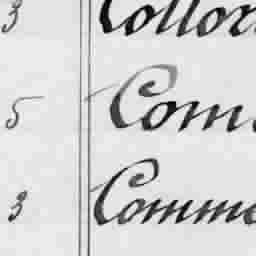 3 Collor
5 Com
3 Comme